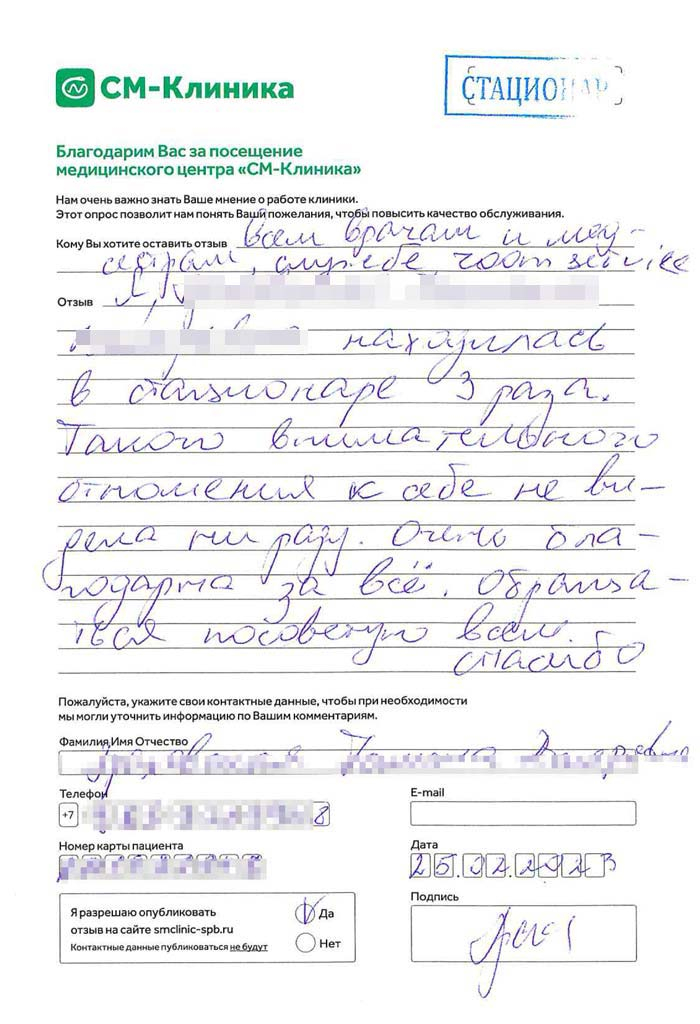 СМ-Клиника
СТАЦИОНАР
Благодарим Вас за посещение
медицинского центра «СМ-Клиника»
Нам очень важно знать Ваше мнение о работе клиники.
Этот опрос позволит нам понять Ваши пожелания, чтобы повысить качество обслуживания.
Кому Вы хотите оставить отзыв всем врачам и мед-
сёстрам, службе room service
Отзыв Я,
находилась
в стационаре 3 раза.
Такого внимательного
отношения к себе не ви-
дела ни разу. Очень бла-
годарна за всё. Обраща-
ться посоветую всем.
спасибо
Пожалуйста, укажите свои контактные данные, чтобы при необходимости
мы могли уточнить информацию по Вашим комментариям.
Фамилия Имя Отчество
Телефон
E-mail
+7 8
Номер карты пациента
Дата
25.02.2023
Я разрешаю опубликовать
отзыв на сайте smclinic-spb.ru
Контактные данные публиковаться не будут
V Да
Нет
Подпись